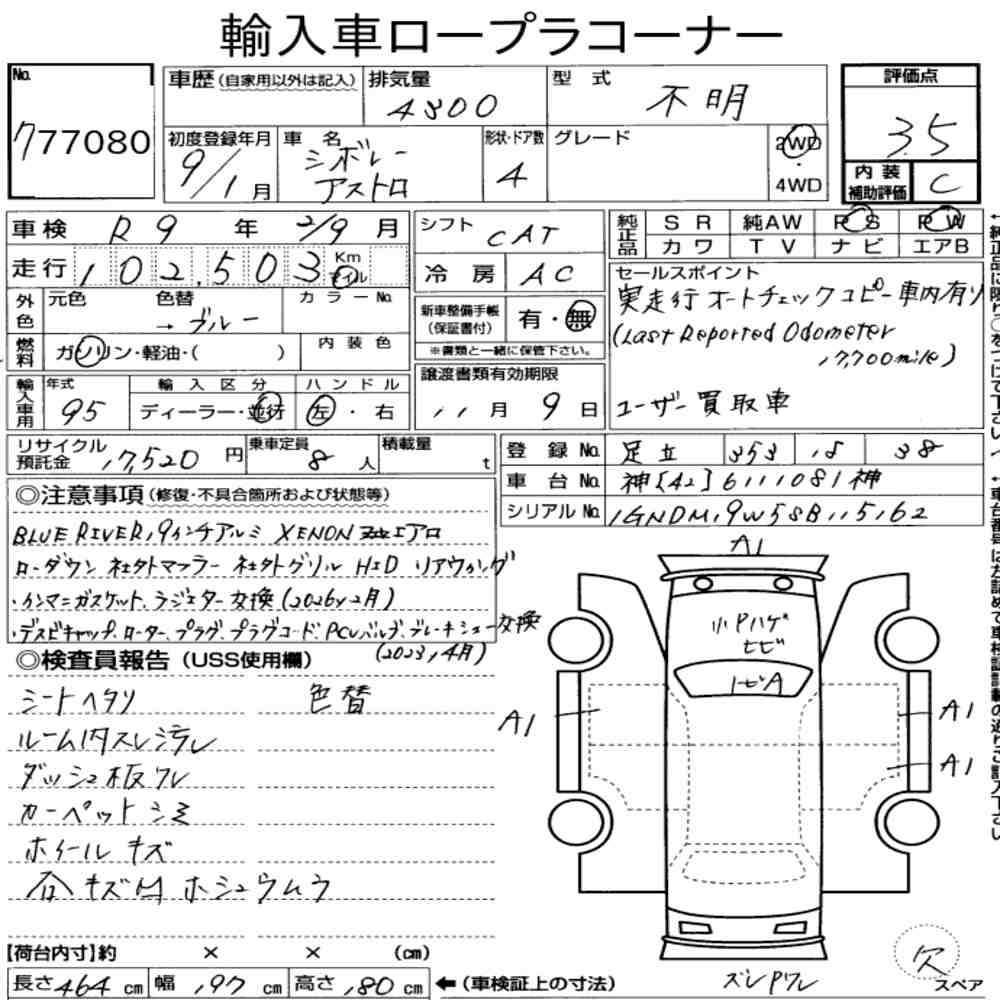 輸入車ロープラコーナー
No.
777080
車歴(自家用以外は記入)
排気量
4300
型式
不明
評価点
3.5
内装補助評価
C
初度登録年月
9/1月
車名
シボレー
アストロ
形状・ドア数
4
グレード
2WD
・
4WD
車検 R9年 2/9月
シフト CAT
純正品
SR 純AW PS PW
カワ TV ナビ エアB
走行 102,503 Km マイル
冷房 AC
セールスポイント
実走行 オートチェックコピー車内有り
(Last Reported Odometer
17,700mile)
ユーザー買取車
外色
元色 色替
→ ブルー
カラーNo.
新車整備手帳
(保証書付)
有・無
※書類と一緒に保管下さい。
燃料
ガソリン・軽油・( )
内装色
譲渡書類有効期限
11月 9日
輸入車用
年式
95
輸入区分
ディーラー・並行
ハンドル
左・右
リサイクル預託金 17,520円
乗車定員
8人
積載量
t
登録No. 足立 353 は 38
車台No. 神[42]6111081神
シリアルNo. 1GNDM19W5SB115162
◎注意事項(修復・不具合箇所および状態等)
BLUE RIVER19インチアルミ XENON エアロ
ローダウン 社外マフラー 社外グリル HID リアウィング
・インマニガスケット、ラジエター交換(2026y2月)
・デスビキャップ、ローター、プラグ、プラグコード、PCVバルブ、ブレーキシュー交換
(2023,4月)
◎検査員報告(USS使用欄)
シートヘタリ 色替
ルーム内スレ汚レ
ダッシュ板ワレ
カーペットシミ
ホイールキズ
各キズ凹ホシュウムラ
【荷台内寸】約 × × (cm)
長さ464cm 幅197cm 高さ180cm
←(車検証上の寸法)
A1
小Pハゲ
ヒビ
トビA
A1
A1
A1
ズレPワレ
欠
スペア